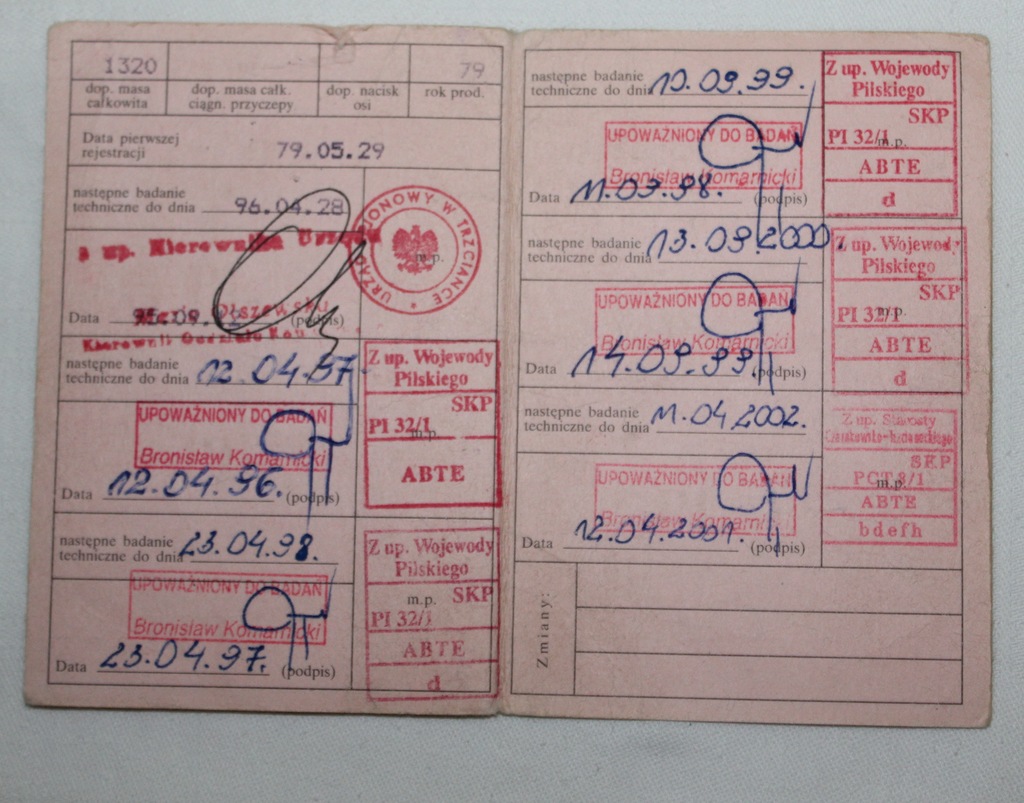 1320 79
dop. masa całkowita dop. masa całk. ciągn. przyczepy. dop. nacisk osi rok prod.
Data pierwszej rejestracji 79.05.29
następne badanie techniczne do dnia 96.04.28
z up. Kierownika Urzędu
URZĄD REJONOWY W TRZCIANCE
m.p.
Olszewsku
Data (podpis)
Kierownik
następne badanie techniczne do dnia 12.04.97
Z up. Wojewody
Pilskiego
SKP
PI 32/1
m.p.
ABTE
UPOWAŻNIONY DO BADAŃ
Bronisław Komarnicki
Data 12.04.96. (podpis)
następne badanie techniczne do dnia 23.04.98.
Z up. Wojewody
Pilskiego
m.p. SKP
PI 32/1
ABTE
d
UPOWAŻNIONY DO BADAŃ
Bronisław Komarnicki
Data 23.04.97r. (podpis)
następne badanie techniczne do dnia 10.09.99.
Z up. Wojewody
Pilskiego
SKP
PI 32/1
m.p.
ABTE
d
UPOWAŻNIONY DO BADAŃ
Bronisław Komarnicki
Data 11.09.98. (podpis)
następne badanie techniczne do dnia 13.09.2000
Z up. Wojewody
Pilskiego
SKP
PI 32/1
m.p.
ABTE
d
UPOWAŻNIONY DO BADAŃ
Bronisław Komarnicki
Data 14.09.99. (podpis)
następne badanie techniczne do dnia 11.04.2002.
Z up. Starosty
Czarnkowsko-Trzcianeckiego
SKP
PCT 8/1
m.p.
ABTE
bdefh
UPOWAŻNIONY DO BADAŃ
Bronisław Komarnicki
Data 12.04.2001. (podpis)
Zmiany: